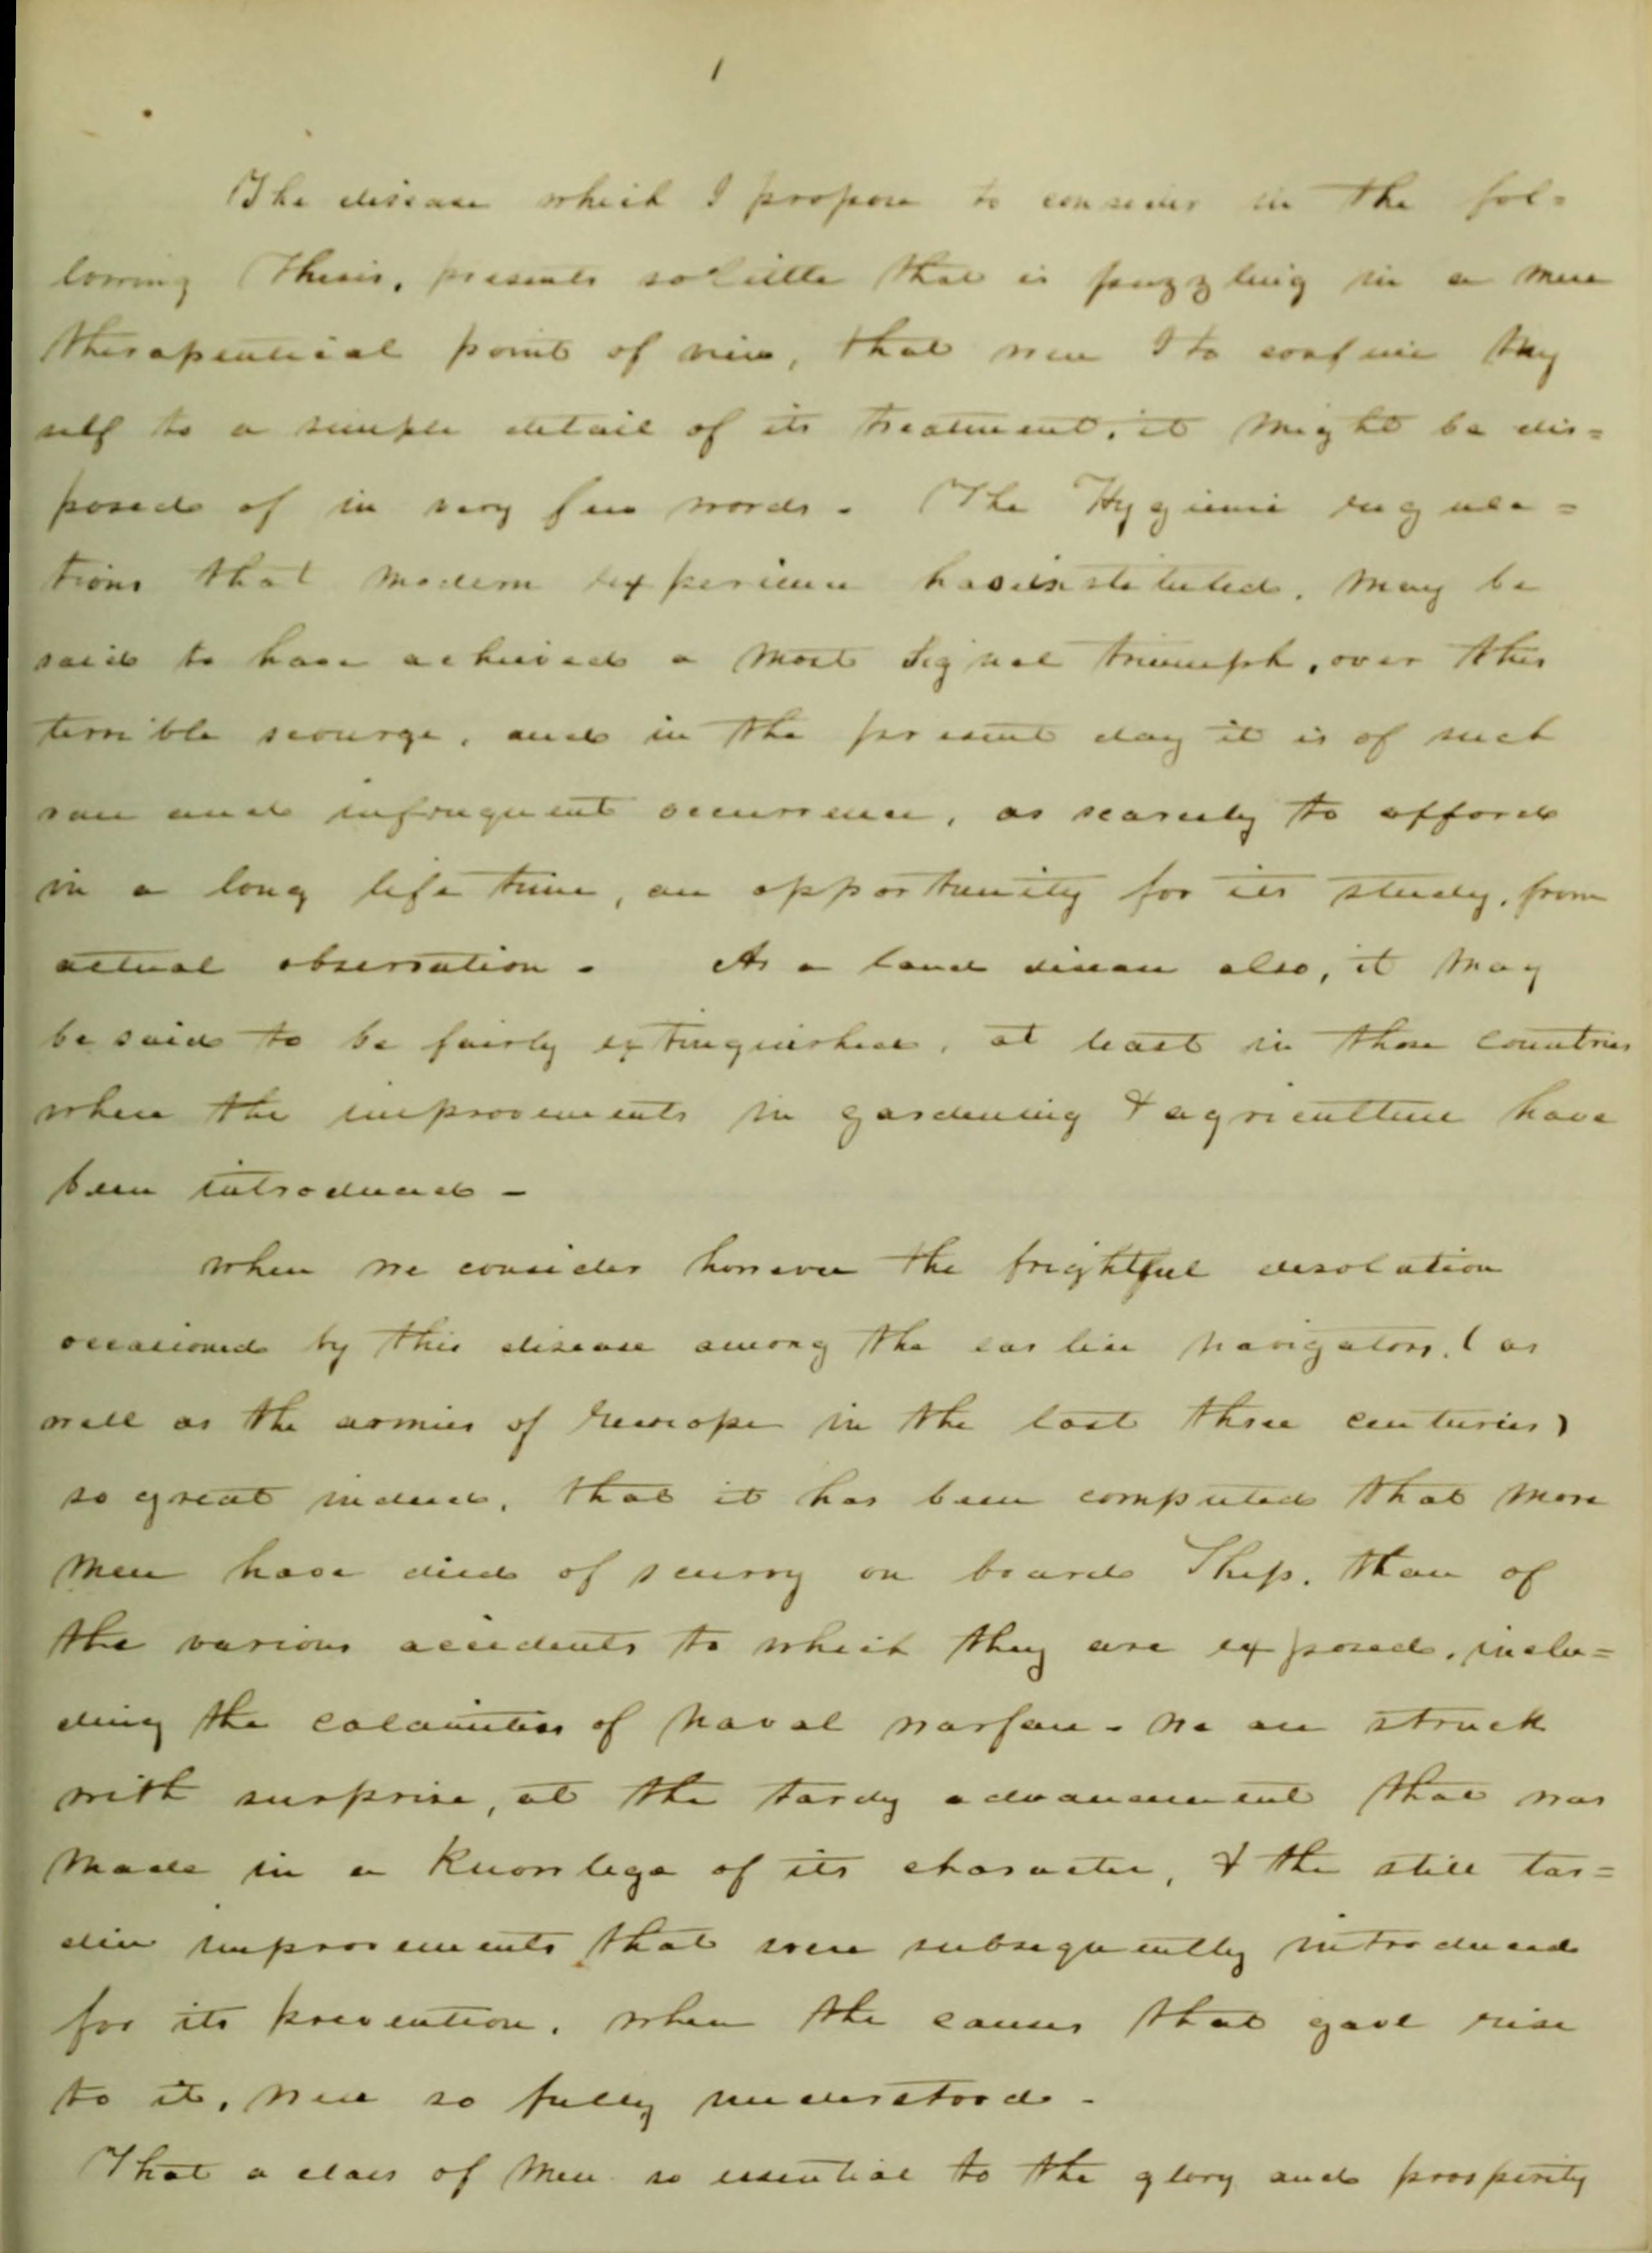 1
The disease which I propose to consider in the fol=
lowing Thesis, presents so little that is puzzling in a mere
therapeutical point of view, that were I to confine my
self to a simple detail of its treatment, it might be dis=
posed of in very few words. The Hygienic regula=
tions that modern experience has instituted, may be
said to have achieved a most signal triumph, over this
terrible scourge, and in the present day it is of such
rare and infrequent occurrence, as scarcely to afford
in a long life time, an opportunity for its study, from
actual observation. As a land disease also, it may
be said to be fairly extinguished, at least in those countries
where the improvements in gardening & agriculture have
been introduced -
When we consider however the frightful desolation
occasioned by this disease among the earlier navigators, (as
well as the armies of Europe in the last three centuries)
so great indeed, that it has been computed that more
men have died of scurvy on board Ship, than of
the various accidents to which they are exposed, inclu=
ding the calamities of naval warfare - we are struck
with surprise, at the tardy advancement that was
made in a Knowlege of its character, & the still tar=
dier improvements that were subsequently introduced
for its prevention, when the causes that gave rise
to it, were so fully understood -
That a class of men so essential to the glory and prosperity